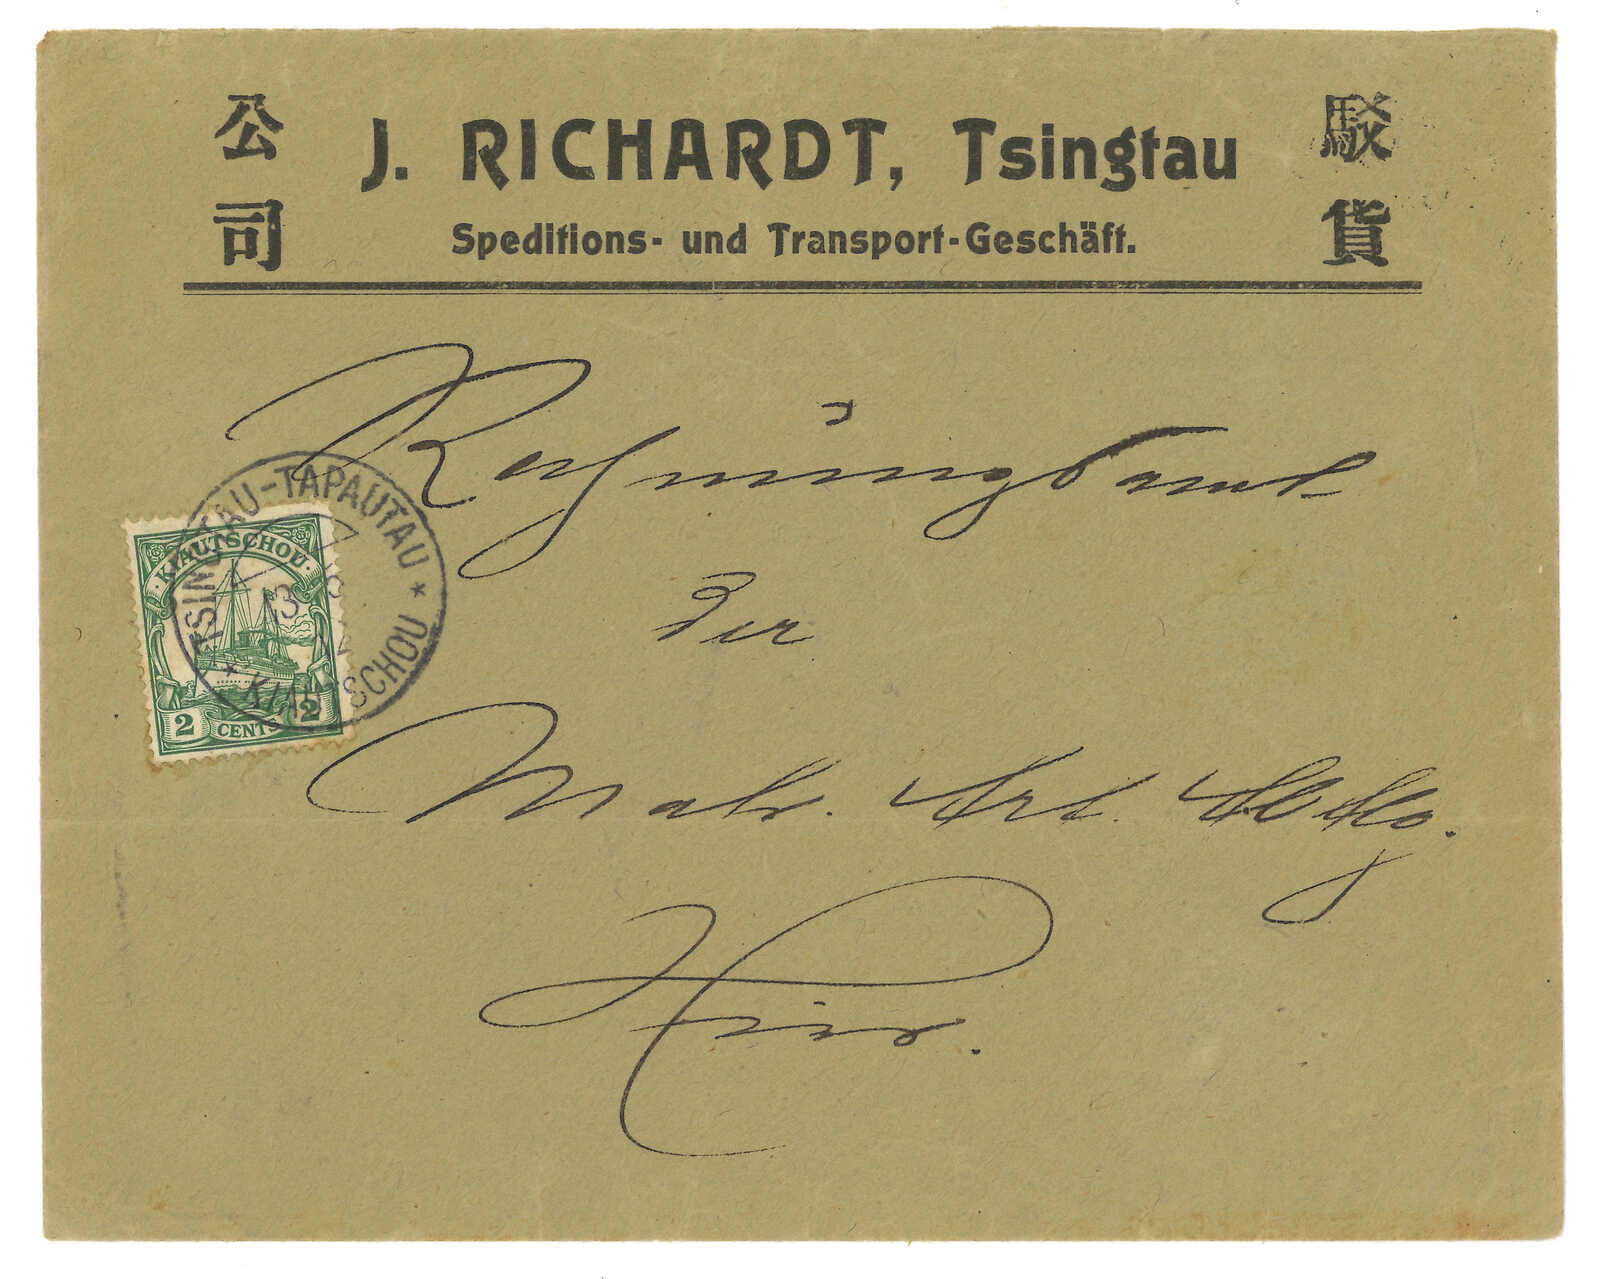 公司
J. RICHARDT, Tsingtau
駁貨
Speditions- und Transport-Geschäft.
Rechnungsamt
der
Matr. Art. Abtlg.
Hier.
TSINGTAU-TAPAUTAU
* KIAUTSCHOU *
KIAUTSCHOU
2 CENTS 2